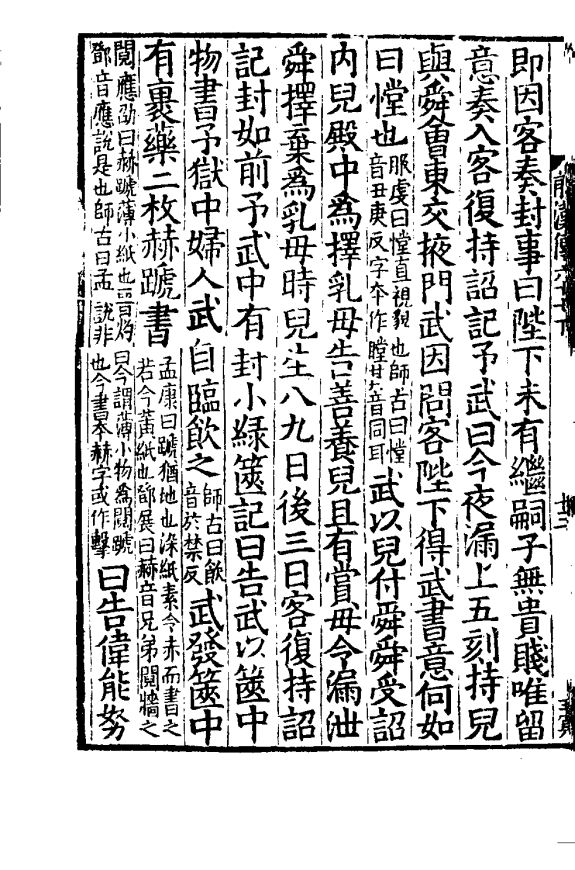 即因客奏封事曰陛下未有繼嗣子無貴賤唯留
意奏入客復持詔記予武曰今夜漏上五刻持兒
與舜會東交掖門武因問客陛下得武書意何如
曰憆也
服虔曰憆直視貌也師古曰憆
音丑庚反字本作瞠其音同耳
武以兒付舜舜受詔
內兒殿中爲擇乳母告善養兒且有賞毋令漏泄
舜擇棄爲乳母時兒生八九日後三日客復持詔
記封如前予武中有封小綠篋記曰告武以篋中
物書予獄中婦人武自臨飲之
師古曰飲
音於禁反
武發篋中
有裹藥二枚赫蹏書
孟康曰蹏猶地也染紙素令赤而書之
若今黃紙也鄧展曰赫音兄弟鬩牆之
鬩應劭曰赫蹏薄小紙也晉灼曰今謂薄小物爲鬩蹏
鄧音應說是也師古曰孟說非也今書本赫字或作擊
曰告偉能努